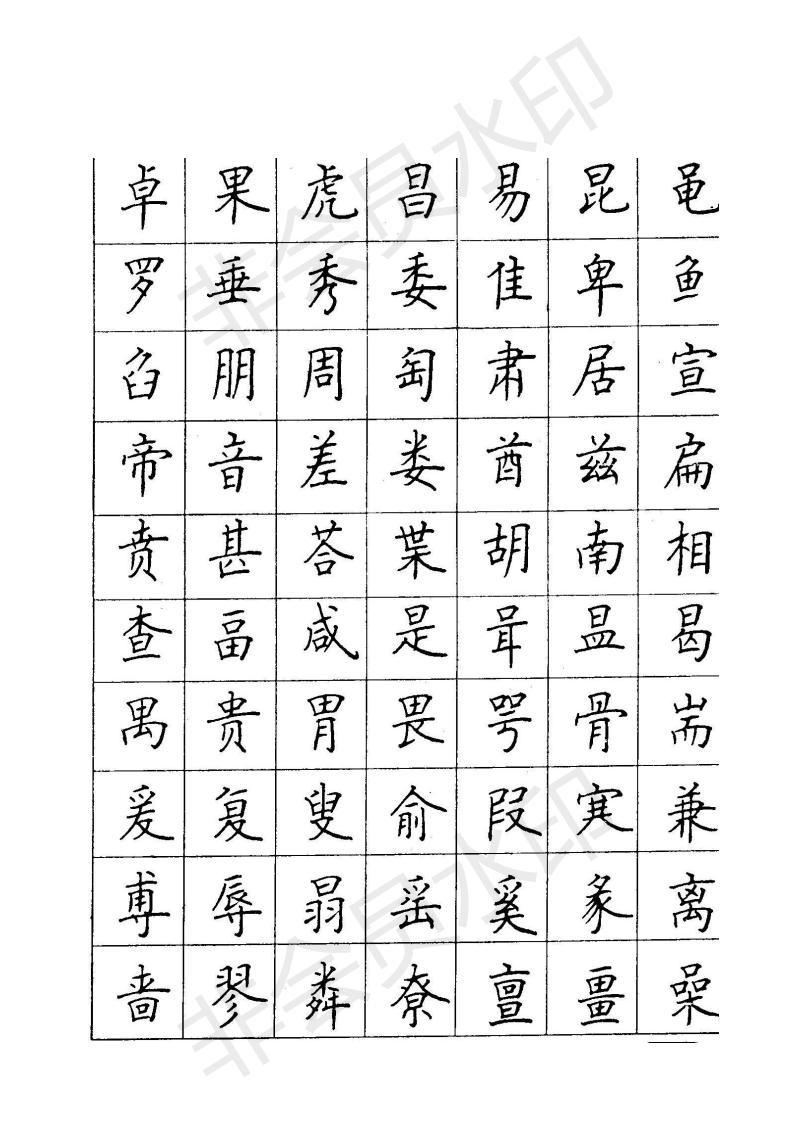 卓 果 虎 昌 易 昆 黾
罗 垂 秀 委 隹 卑 鱼
臽 朋 周 匋 肃 居 宣
帝 音 差 娄 酋 兹 扁
贲 甚 荅 枼 胡 南 相
查 畐 咸 是 咠 昷 曷
禺 贵 胃 畏 咢 骨 耑
爰 复 叟 俞 叚 寒 兼
尃 辱 弱 䍃 奚 彖 离
啬 翏 粦 尞 亶 畺 喿
非会员水印
非会员水印